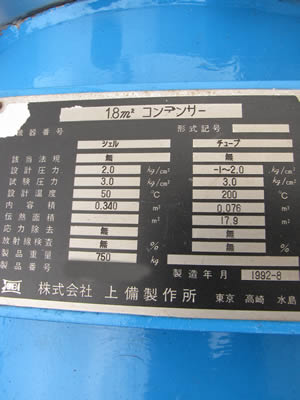 1.8m² コンデンサー
機器番号 形式記号
シェル チューブ
該当法規 無 無
設計圧力 2.0 kg/cm² -1~2.0 kg/cm²
試験圧力 3.0 kg/cm² 3.0 kg/cm²
設計温度 50 ℃ 200 ℃
内容積 0.340 m³ 0.076 m³
伝熱面積 m² 17.9 m²
応力除去 無 無
放射線検査 無 % 無 %
製品重量 750 kg
製品番号 製造年月 1992-8
株式会社 上備製作所 東京 高崎 水島